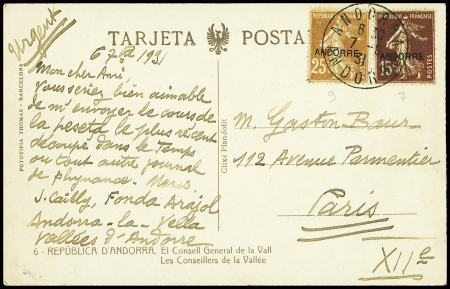 Urgent
TARJETA POSTAL
6 7bre 1931
Mon cher Ami,
Vous seriez bien aimable
de m'envoyer le cours de
la peseta le plus récent
découpé dans le Temps
ou tout autre journal
de finance. Merci
J. Cailly, Fonda Arajol
Andorra-la-Vella
Vallées d'Andorre
6 - REPÚBLICA D'ANDORRA. El Consell General de la Vall
Les Conseillers de la Vallée
FOTOTIPIA THOMAS - BARCELONA
Clixé Plandolit
RÉPUBLIQUE FRANÇAISE
ANDORRE
25c
POSTES
ANDORRE
15c
ANDORRE
31
ANDORRE
9
7
M. Gaston Baur
112 Avenue Parmentier
Paris
XIIe